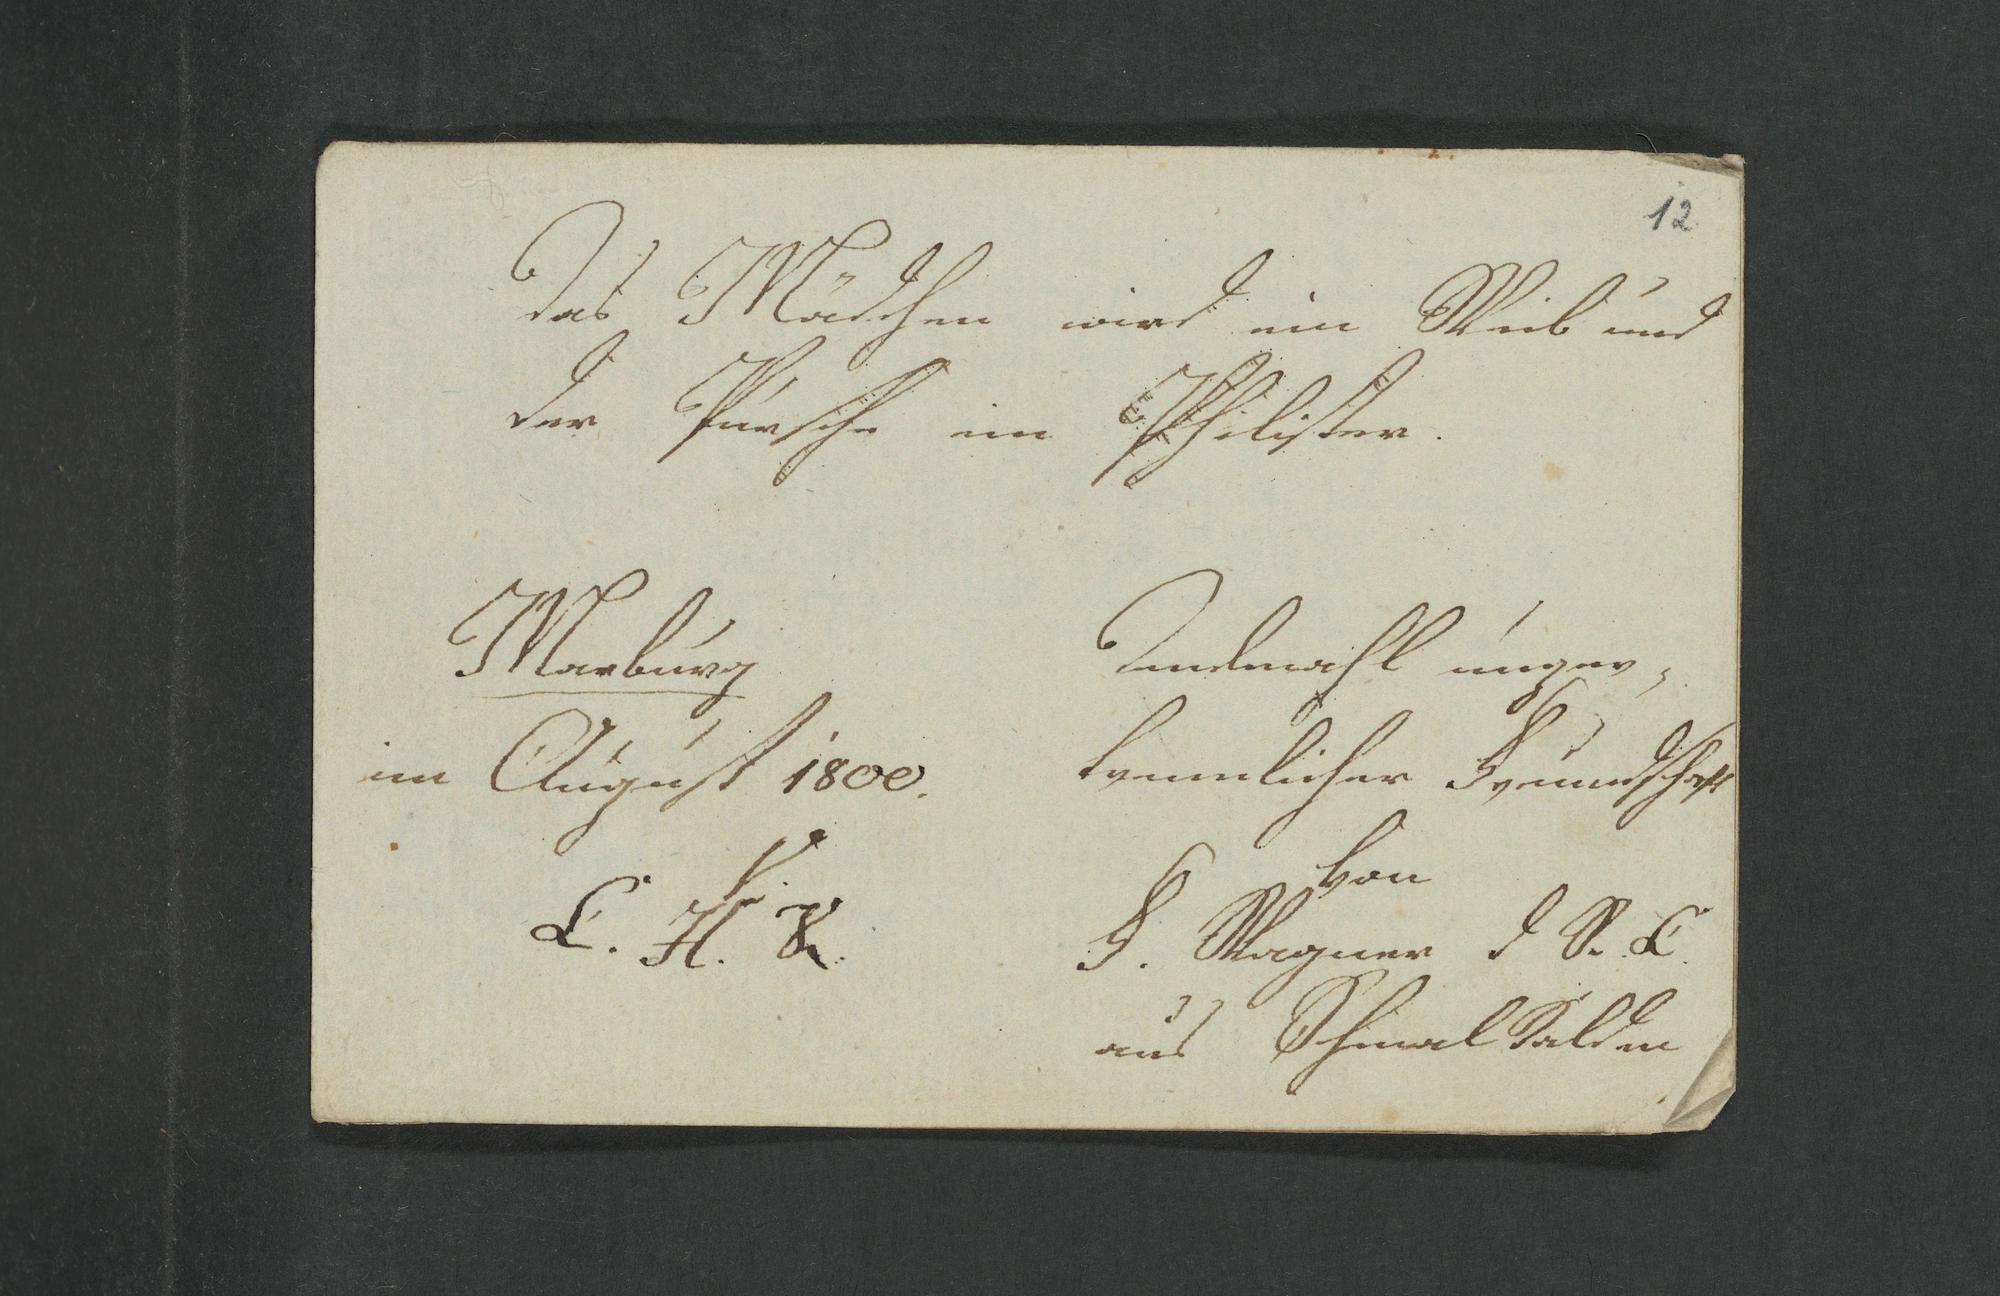 12
Das Mädchen wird ein Weib und
der Pursche ein Philister.
Marburg
im August 1800.
L. H. K.
Denkmahl unzer,
trennlicher Freundschaft
von
F. Wagner d R. L.
aus Schmalkalden